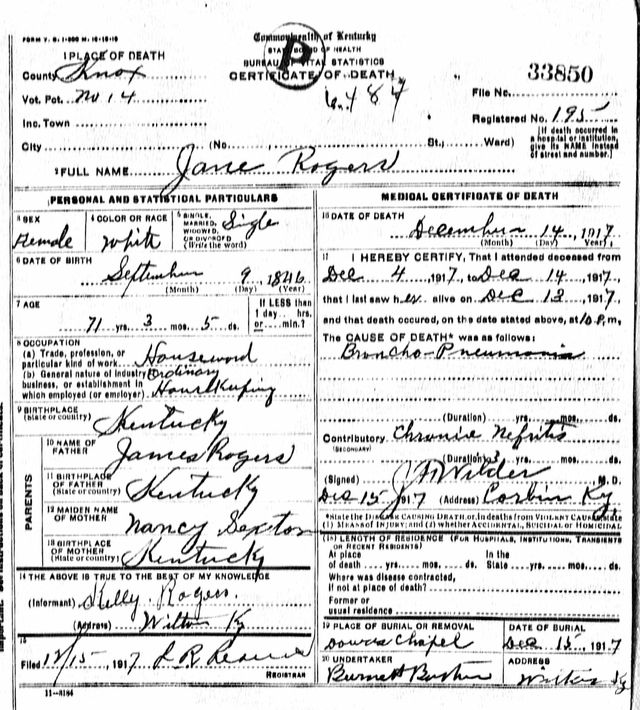 FORM V. S. 1-
Commonwealth of Kentucky
STATE BOARD OF HEALTH
BUREAU OF VITAL STATISTICS
CERTIFICATE OF DEATH
D
487
1 PLACE OF DEATH
County Knox
Vot. Pct. No 14
Inc. Town
City (No. St.; Ward)
File No. 33850
Registered No. 195
[If death occurred in
a hospital or institution,
give its NAME instead
of street and number.]
2 FULL NAME Jane Rogers
PERSONAL AND STATISTICAL PARTICULARS
3 SEX
Female
4 COLOR OR RACE
White
5 SINGLE,
MARRIED,
WIDOWED,
OR DIVORCED
(Write the word)
Single
6 DATE OF BIRTH
September 9, 1846
(Month) (Day) (Year)
7 AGE
71 yrs. 3 mos. 5 ds.
If LESS than
1 day hrs.
or min.?
8 OCCUPATION
(a) Trade, profession, or
particular kind of work Housework
(b) General nature of industry Ordinary
business, or establishment in
which employed (or employer) Housekeeping
9 BIRTHPLACE
(State or country) Kentucky
PARENTS
10 NAME OF
FATHER James Rogers
11 BIRTHPLACE
OF FATHER
(State or country) Kentucky
12 MAIDEN NAME
OF MOTHER Nancy Sexton
13 BIRTHPLACE
OF MOTHER
(State or country) Kentucky
14 THE ABOVE IS TRUE TO THE BEST OF MY KNOWLEDGE
(Informant) Kelly Rogers.
(Address) Wilton Ky
15
Filed 12/15, 1917 L R
REGISTRAR
11-3184
MEDICAL CERTIFICATE OF DEATH
16 DATE OF DEATH
December 14, 1917
(Month) (Day) (Year)
17 I HEREBY CERTIFY, That I attended deceased from
Dec 4, 1917, to Dec 14, 1917,
that I last saw her alive on Dec 13, 1917,
and that death occured, on the date stated above, at 10 P, m,
The CAUSE OF DEATH* was as follows:
Broncho-Pneumonia
(Duration) yrs. mos. ds.
Contributory Chronic Nefritis
(SECONDARY)
(Duration) 3 yrs. mos. ds.
(Signed) Wilder M. D.
Dec 15, 1917 (Address) Corbin Ky
*State the DISEASE CAUSING DEATH or, in deaths from VIOLENT CAUSES, state
(1) MEANS of INJURY; and (2) whether ACCIDENTAL, SUICIDAL or HOMICIDAL
18 LENGTH OF RESIDENCE (FOR HOSPITALS, INSTITUTIONS, TRANSIENTS
OR RECENT RESIDENTS)
At place In the
of death yrs. mos. ds. State yrs. mos. ds.
Where was disease contracted,
if not at place of death?
Former or
usual residence
19 PLACE OF BURIAL OR REMOVAL
Chapel
DATE OF BURIAL
Dec 15, 1917
20 UNDERTAKER
ADDRESS
Wilton Ky